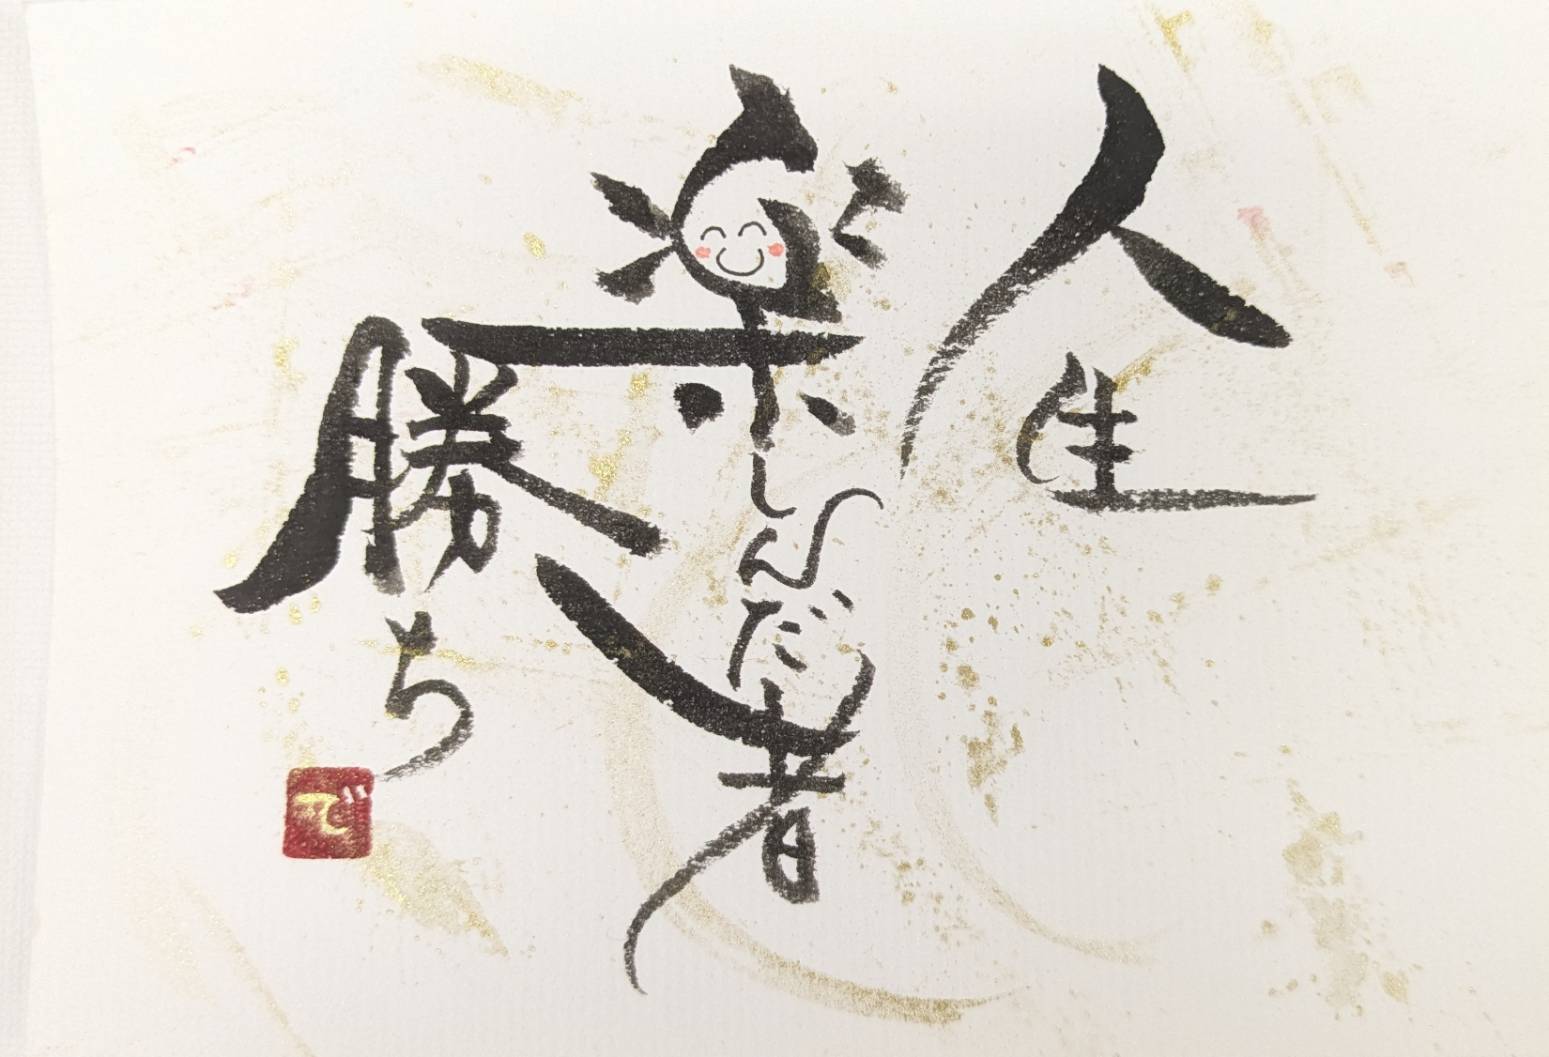 人生
楽しんだ者
勝ち
で